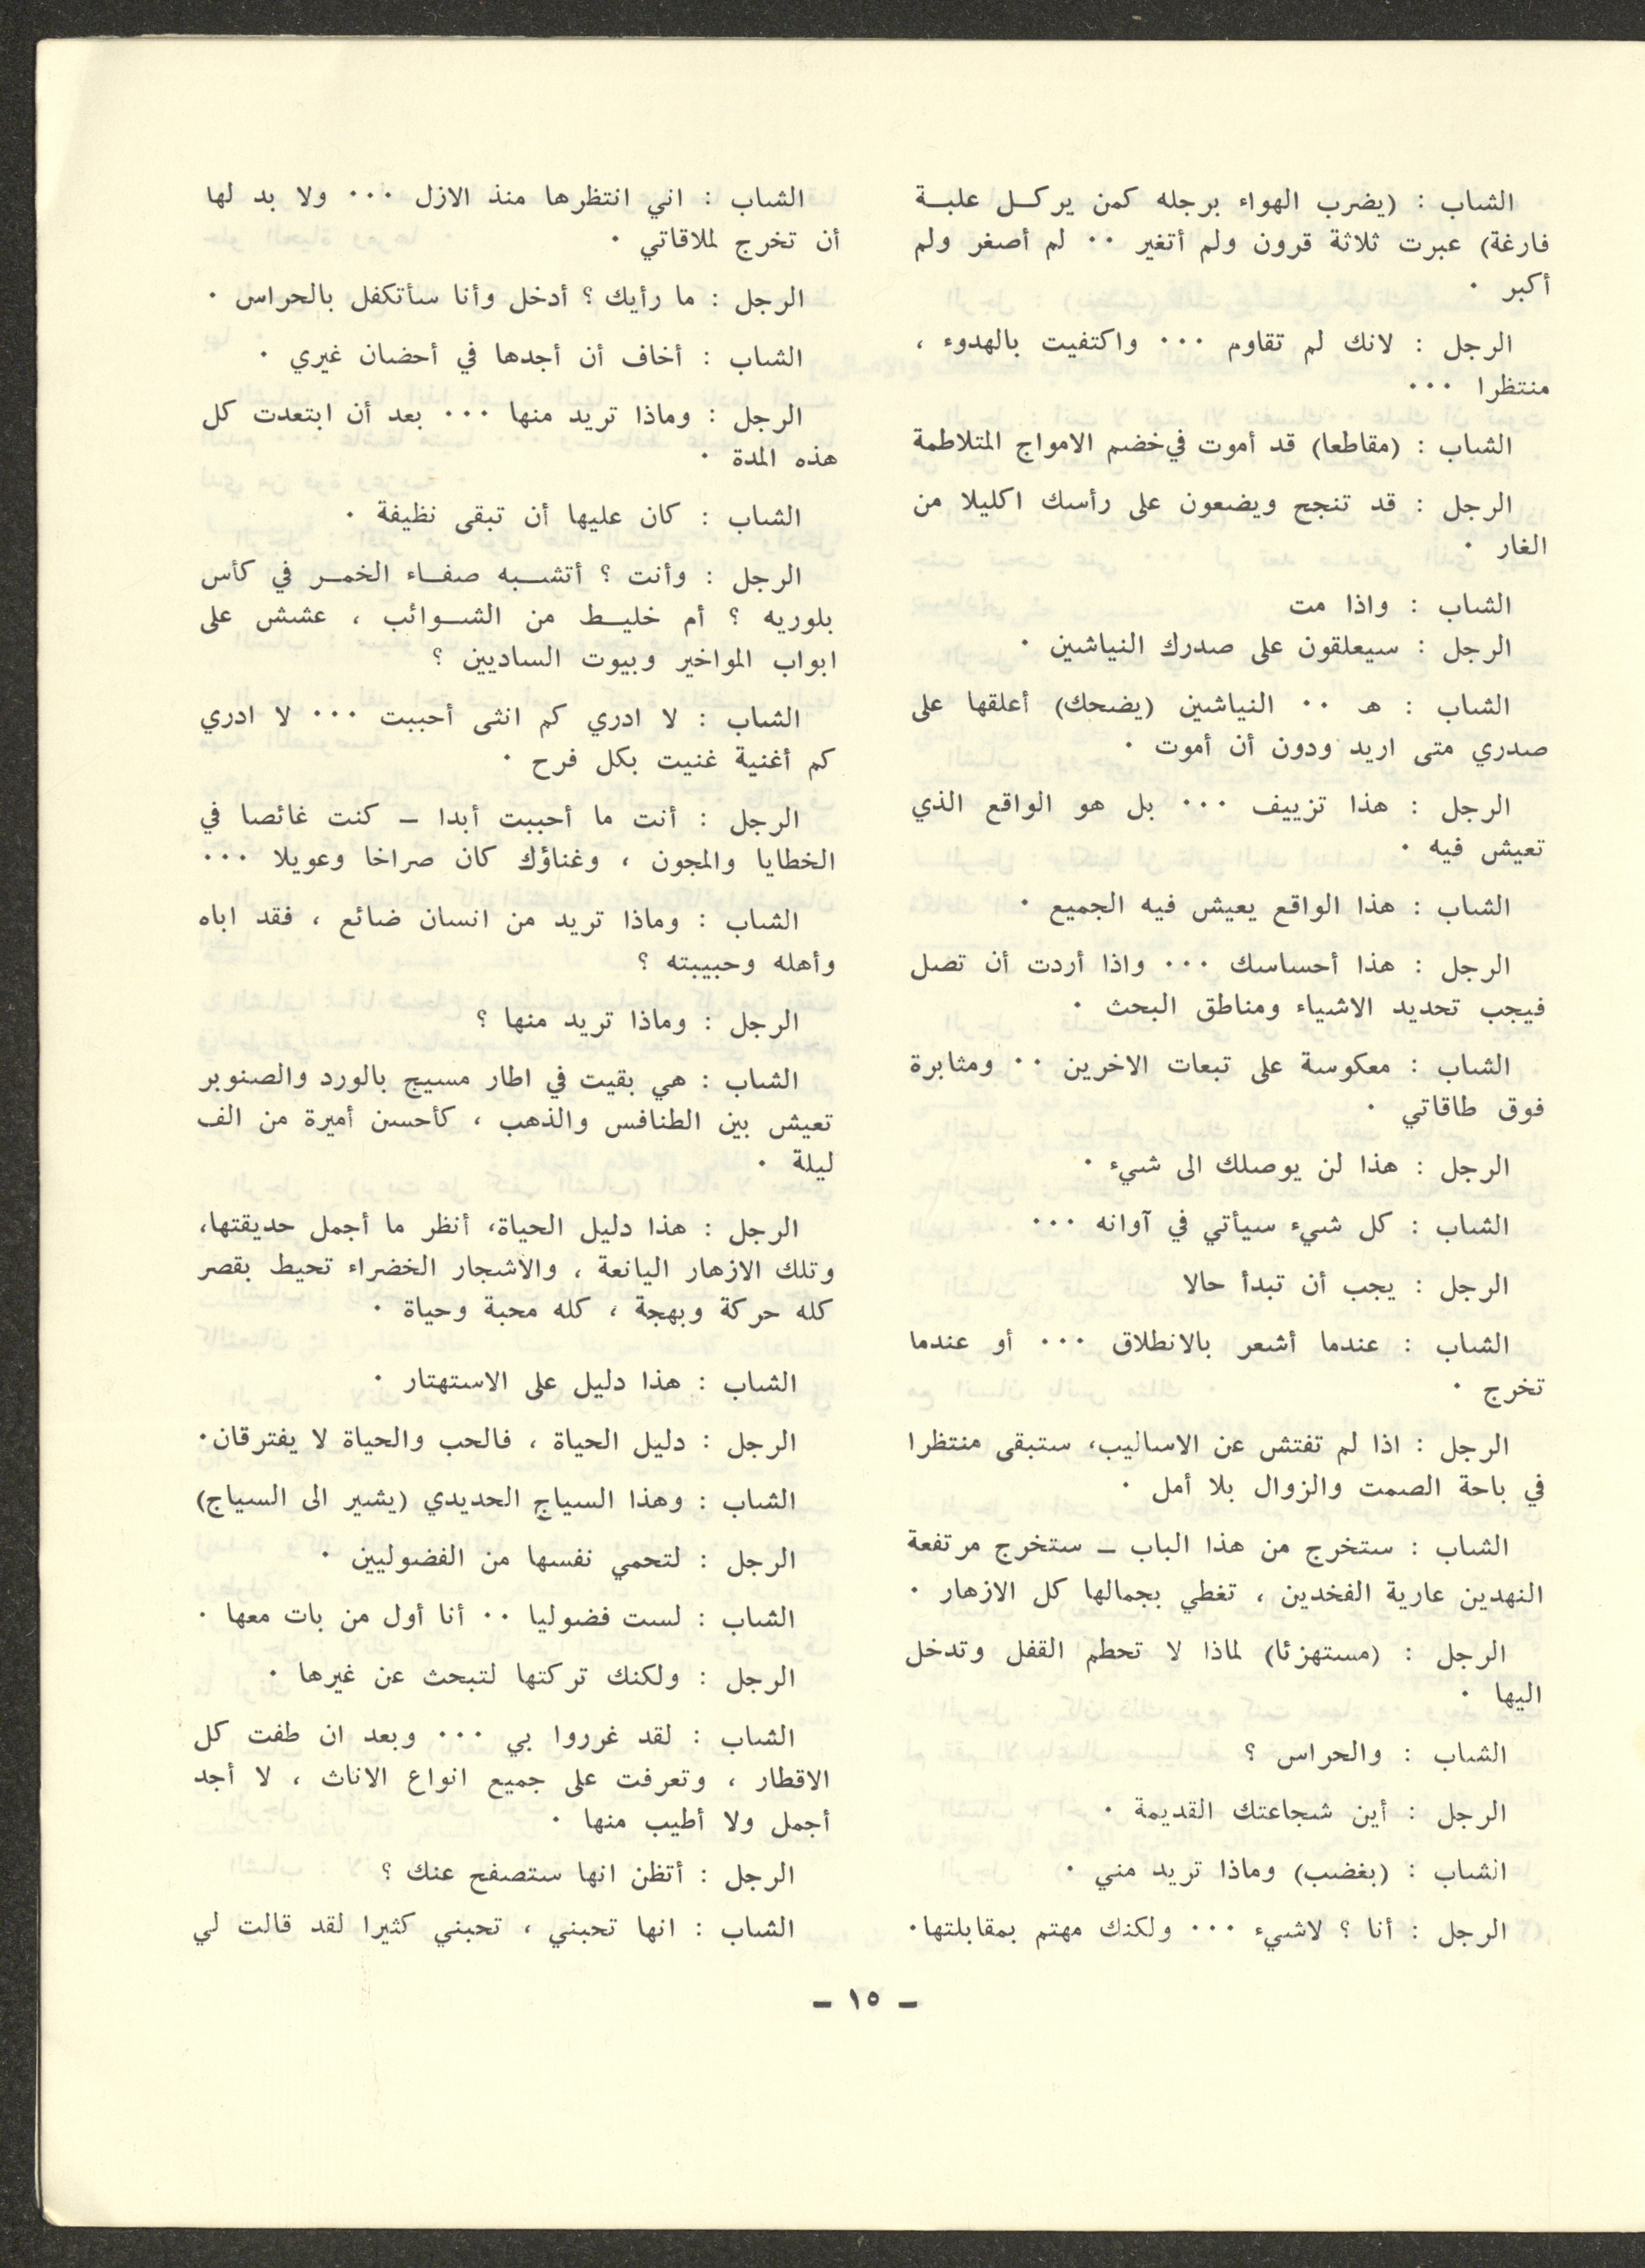 الشاب : (يضرب الهواء برجله كمن يركل علبة
فارغة) عبرت ثلاثة قرون ولم أتغير ٠٠ لم أصغر ولم
أكبر ٠
الرجل : لانك لم تقاوم ٠٠٠ واكتفيت بالهدوء ،
منتظرا ٠٠٠
الشاب : (مقاطعا) قد أموت في خضم الامواج المتلاطمة
الرجل : قد تنجح ويضعون على رأسك اكليلا من
الغار ٠
الشاب : واذا مت
الرجل : سيعلقون على صدرك النياشين ٠
الشاب : هـ ٠٠ النياشين (يضحك) أعلقها على
صدري متى اريد ودون أن أموت ٠
الرجل : هذا تزييف ٠٠٠ بل هو الواقع الذي
تعيش فيه ٠
الشاب : هذا الواقع يعيش فيه الجميع ٠
الرجل : هذا أحساسك ٠٠٠ واذا أردت أن تصل
فيجب تحديد الاشياء ومناطق البحث ٠
الشاب : معكوسة على تبعات الاخرين ٠٠ ومثابرة
فوق طاقاتي ٠
الرجل : هذا لن يوصلك الى شيء ٠
الشاب : كل شيء سيأتي في آوانه ٠٠٠
الرجل : يجب أن تبدأ حالا
الشاب : عندما أشعر بالانطلاق ٠٠٠ أو عندما
تخرج ٠
الرجل : اذا لم تفتش عن الاساليب، ستبقى منتظرا
في باحة الصمت والزوال بلا أمل ٠
الشاب : ستخرج من هذا الباب ـ ستخرج مرتفعة
النهدين عارية الفخدين ، تغطي بجمالها كل الازهار ٠
الرجل : (مستهزئا) لماذا لا تحطم القفل وتدخل
اليها ٠
الشاب : والحراس ؟
الرجل : أين شجاعتك القديمة ٠
الشاب : (بغضب) وماذا تريد مني ٠
الرجل : أنا ؟ لاشيء ٠٠٠ ولكنك مهتم بمقابلتها٠
الشاب : اني انتظرها منذ الازل ٠٠٠ ولا بد لها
أن تخرج لملاقاتي ٠
الرجل : ما رأيك ؟ أدخل وأنا سأتكفل بالحراس ٠
الشاب : أخاف أن أجدها في أحضان غيري ٠
الرجل : وماذا تريد منها ٠٠٠ بعد أن ابتعدت كل
هذه المدة ٠
الشاب : كان عليها أن تبقى نظيفة ٠
الرجل : وأنت ؟ أتشبه صفاء الخمر في كأس
بلوريه ؟ أم خليط من الشوائب ، عشش على
ابواب المواخير وبيوت الساديين ؟
الشاب : لا ادري كم انثى أحببت ٠٠٠ لا ادري
كم أغنية غنيت بكل فرح ٠
الرجل : أنت ما أحببت أبدا ـ كنت غائصا في
الخطايا والمجون ، وغناؤك كان صراخا وعويلا ٠٠٠
الشاب : وماذا تريد من انسان ضائع ، فقد اباه
وأهله وحبيبته ؟
الرجل : وماذا تريد منها ؟
الشاب : هي بقيت في اطار مسيج بالورد والصنوبر
تعيش بين الطنافس والذهب ، كأحسن أميرة من الف
ليلة ٠
الرجل : هذا دليل الحياة، أنظر ما أجمل حديقتها،
وتلك الازهار اليانعة ، والأشجار الخضراء تحيط بقصر
كله حركة وبهجة ، كله محبة وحياة ٠
الشاب : هذا دليل على الاستهتار ٠
الرجل : دليل الحياة ، فالحب والحياة لا يفترقان٠
الشاب : وهذا السياج الحديدي (يشير الى السياج)
الرجل : لتحمي نفسها من الفضوليين ٠
الشاب : لست فضوليا ٠٠ أنا أول من بات معها ٠
الرجل : ولكنك تركتها لتبحث عن غيرها ٠
الشاب : لقد غرروا بي ٠٠٠ وبعد ان طفت كل
الاقطار ، وتعرفت على جميع انواع الاناث ، لا أجد
أجمل ولا أطيب منها ٠
الرجل : أتظن انها ستصفح عنك ؟
الشاب : انها تحبني ، تحبني كثيرا لقد قالت لي
ـ ١٥ ـ